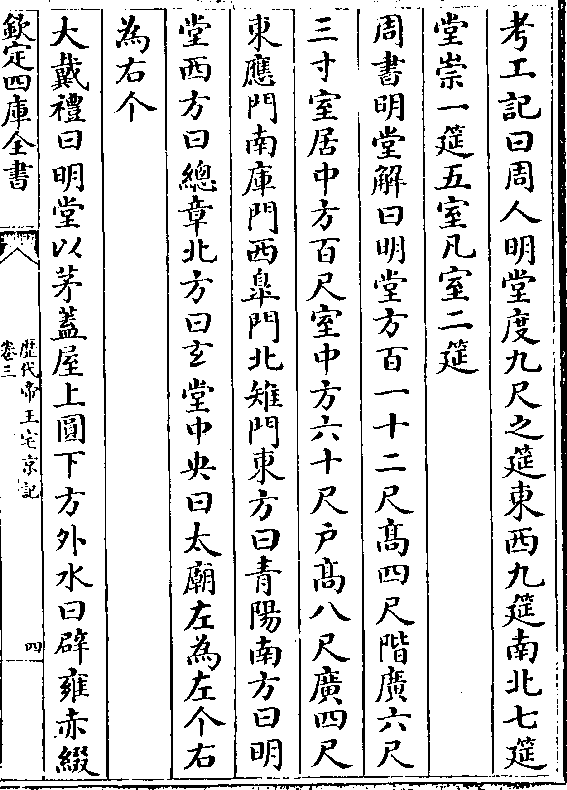 考工記曰周人明堂度九尺之筵東西九筵南北七筵
堂崇一筵五室凡室二筵
周書明堂解曰明堂方百一十二尺高四尺階廣六尺
三寸室居中方百尺室中方六十尺户高八尺廣四尺
東應門南庫門西臯門北雉門東方曰青陽南方曰明
堂西方曰總章北方曰玄堂中央曰太廟左為左个右
為右个
大戴禮曰明堂以茅蓋屋上圓下方外水曰辟雍赤綴
欽定四庫全書
歴代帝王宅京記
卷三
四